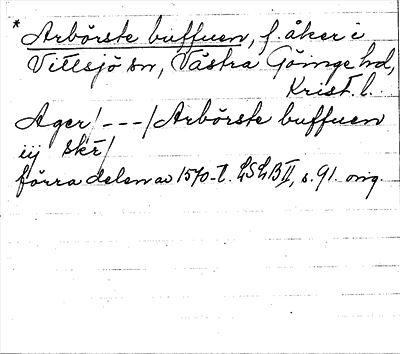 * Arbörste buffuen, f. åker i
Vittsjö sn, Västra Göinge hd,
Krist. l.
Ager/---/Arbörste buffuen
iij skr/
förra delen av 1570-t. LSLB II, s. 91. orig.